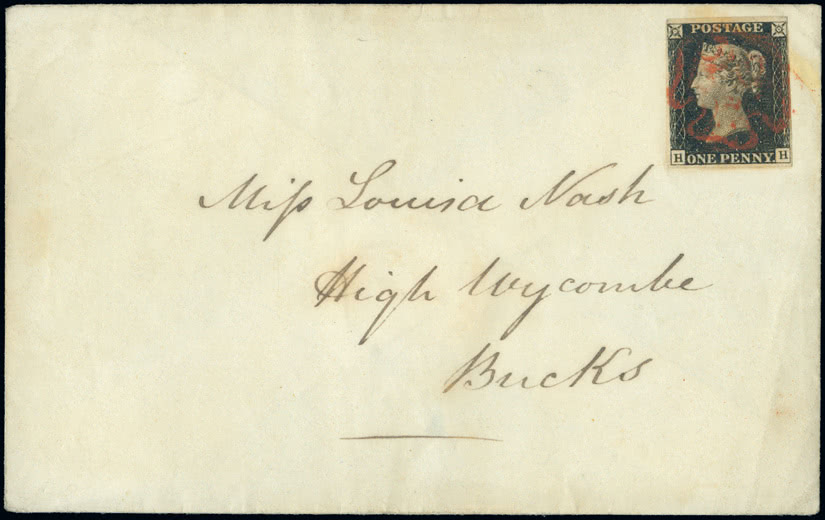 POSTAGE
H ONE PENNY. H
Miſs Louisa Nash
High Wycombe
Bucks